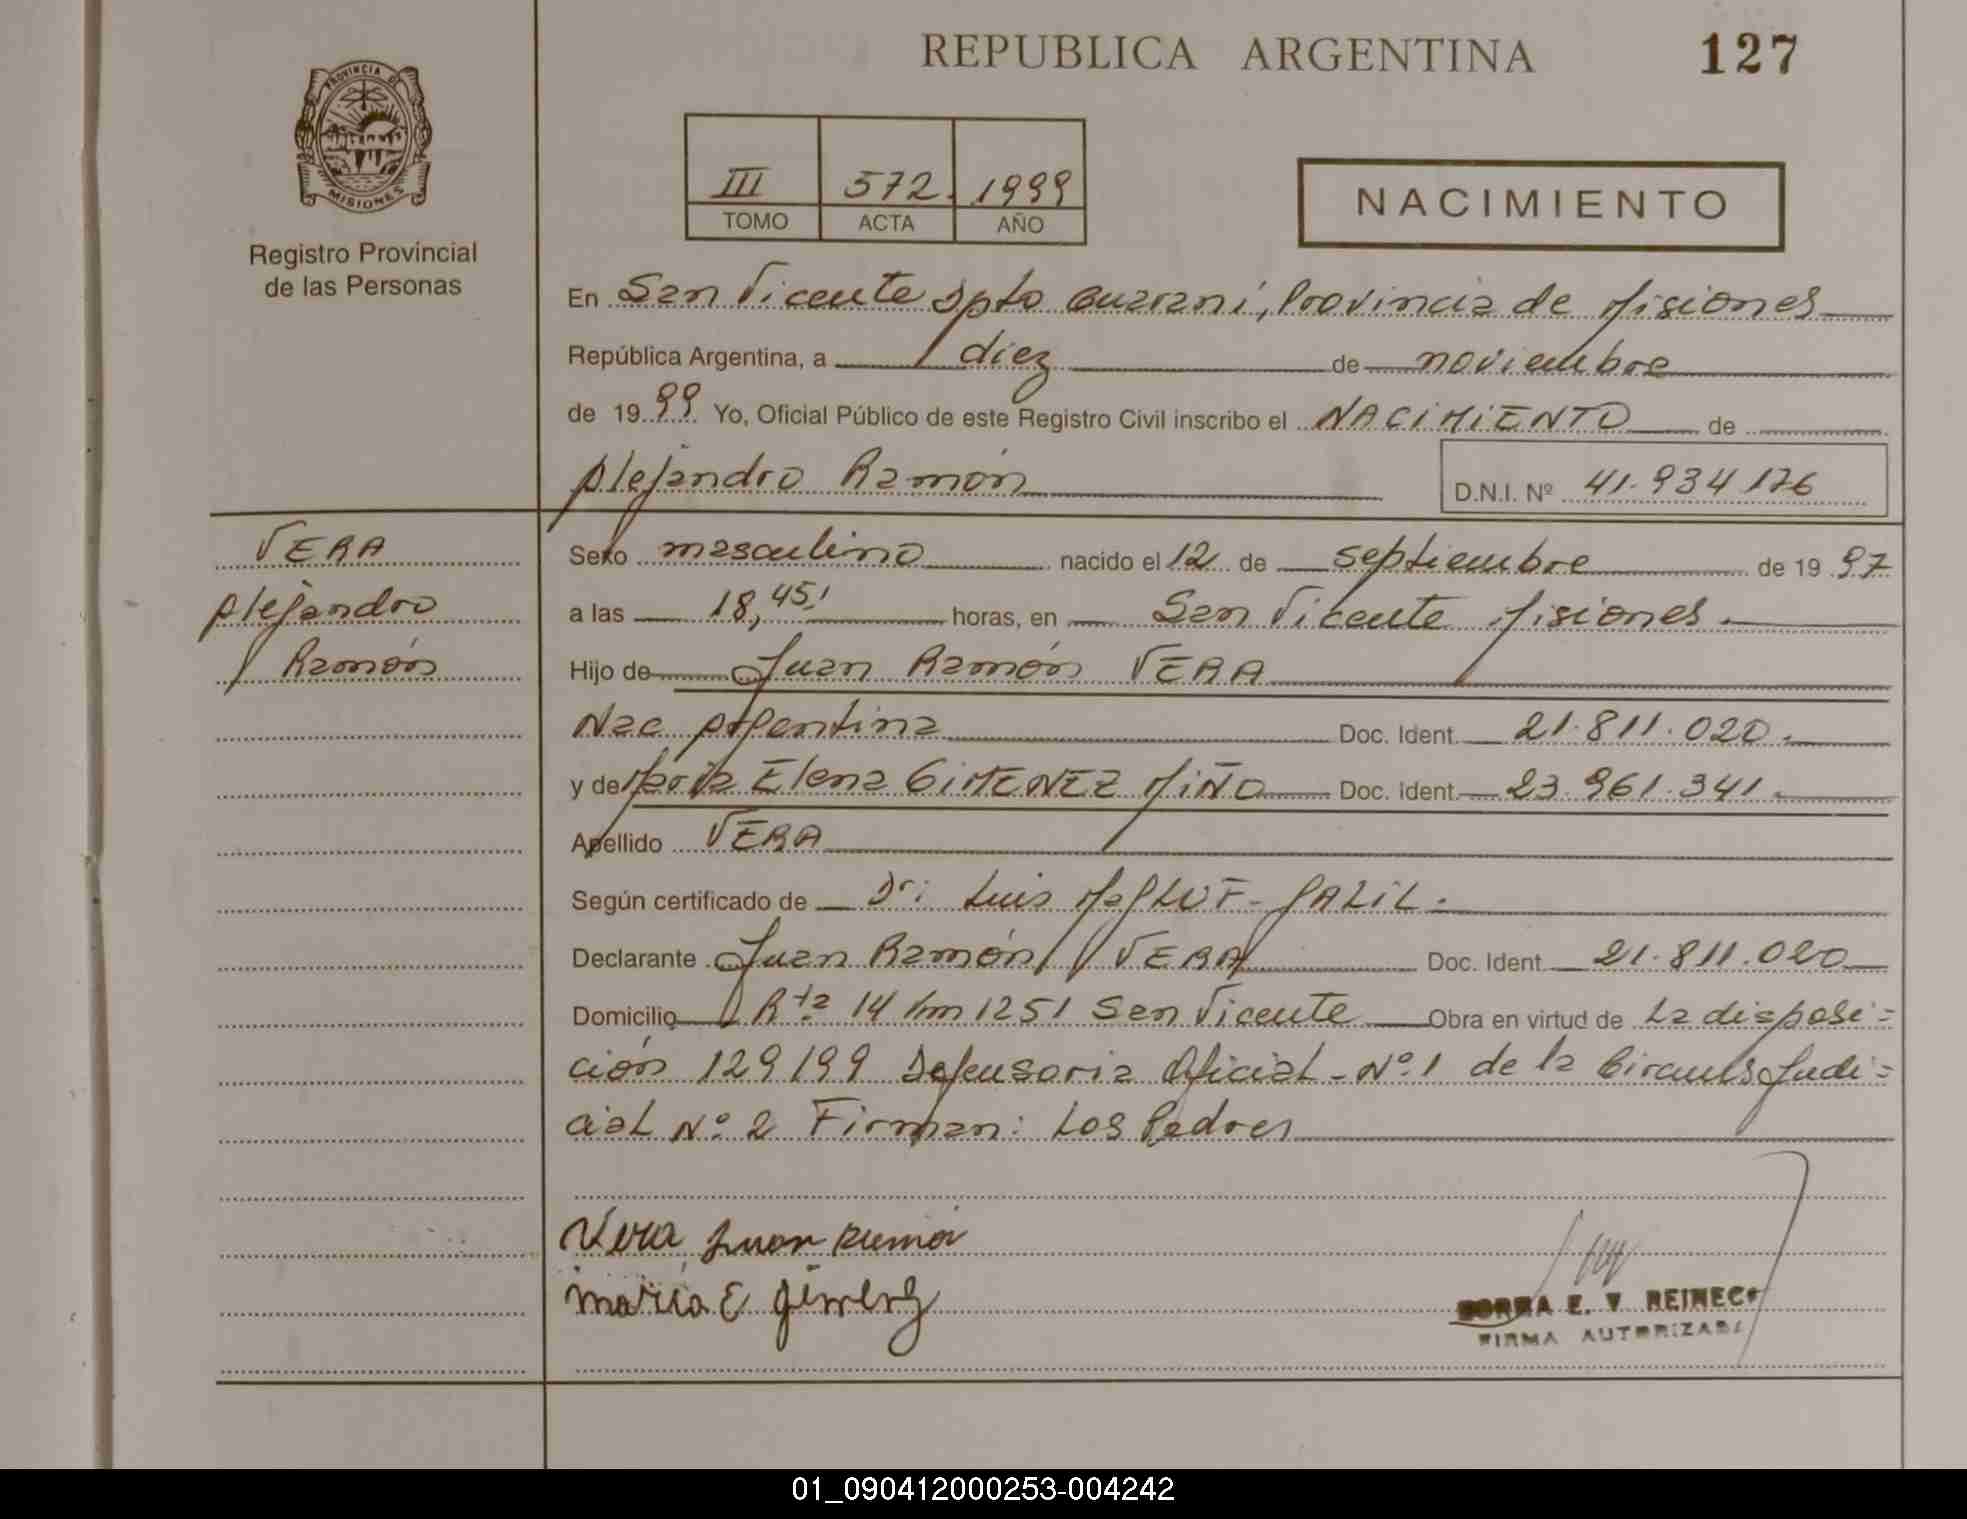 REPUBLICA ARGENTINA
127
PROVINCIA DE
MISIONES
Registro Provincial
de las Personas
III 572. 1999
TOMO ACTA AÑO
NACIMIENTO
En San Vicente Dpto Guaraní, Provincia de Misiones
República Argentina, a diez de noviembre
de 1999 Yo, Oficial Público de este Registro Civil inscribo el NACIMIENTO de
Alejandro Ramón
D.N.I. Nº 41.934.176
VERA
Alejandro
Ramón
Sexo masculino nacido el 12 de septiembre de 1997
a las 18,45' horas, en San Vicente Misiones.
Hijo de Juan Ramón VERA
Nac Argentina Doc. Ident. 21.811.020.
y de María Elena GiMENEZ MiÑO Doc. Ident. 23.961.341.
Apellido VERA
Según certificado de Dr: Luis GALiL.
Declarante Juan Ramón VERA Doc. Ident. 21.811.020
Domicilio Rta 14 km 1251 San Vicente Obra en virtud de La disposi=
ción 129/99 Defensoria Oficial Nº 1 de la Judi=
cial Nº 2 Firman: Los Padres
Vera Juan
maria E gimenez
E. V. REINEC
FIRMA AUTORIZADA
01_090412000253-004242